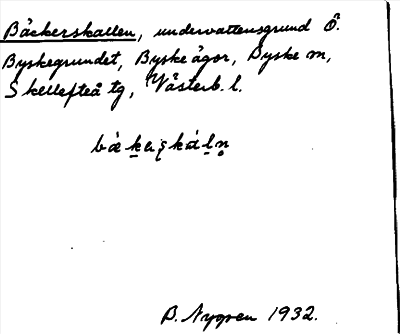 Bäckerskallen, undervattensgrund Ö.
Byskegrundet, Byske ägor, Byske m,
Skellefteå tg, Västerb. l.
B. Nygren 1932.